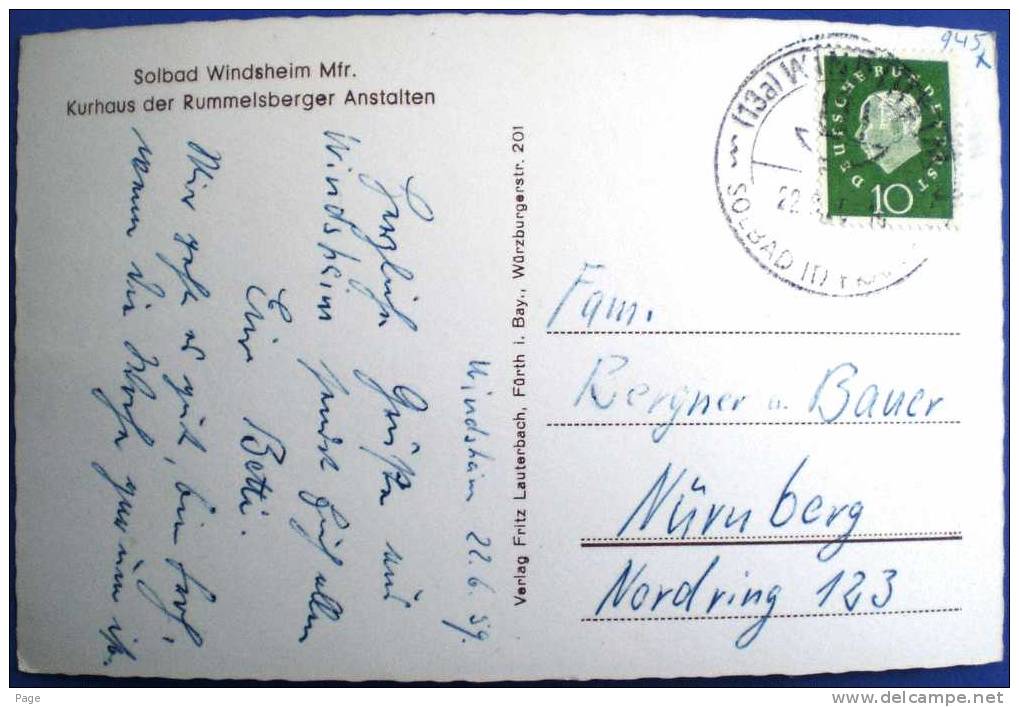 Solbad Windsheim Mfr.
Kurhaus der Rummelsberger Anstalten
Windsheim 22.6.59.
Herzliche Grüße aus
Windsheim sendet Euch allen
Eure Betti.
Mir geht es gut, bin froh,
wenn die Woche herum ist.
Verlag Fritz Lauterbach, Fürth i. Bay., Würzburgerstr. 201
945
(13a) WINDSHEIM
SOLBAD
22.6.
DEUTSCHE BUNDESPOST
10
Fam.
Bergner u. Bauer
Nürnberg
Nordring 123
Page
www.delcampe.net